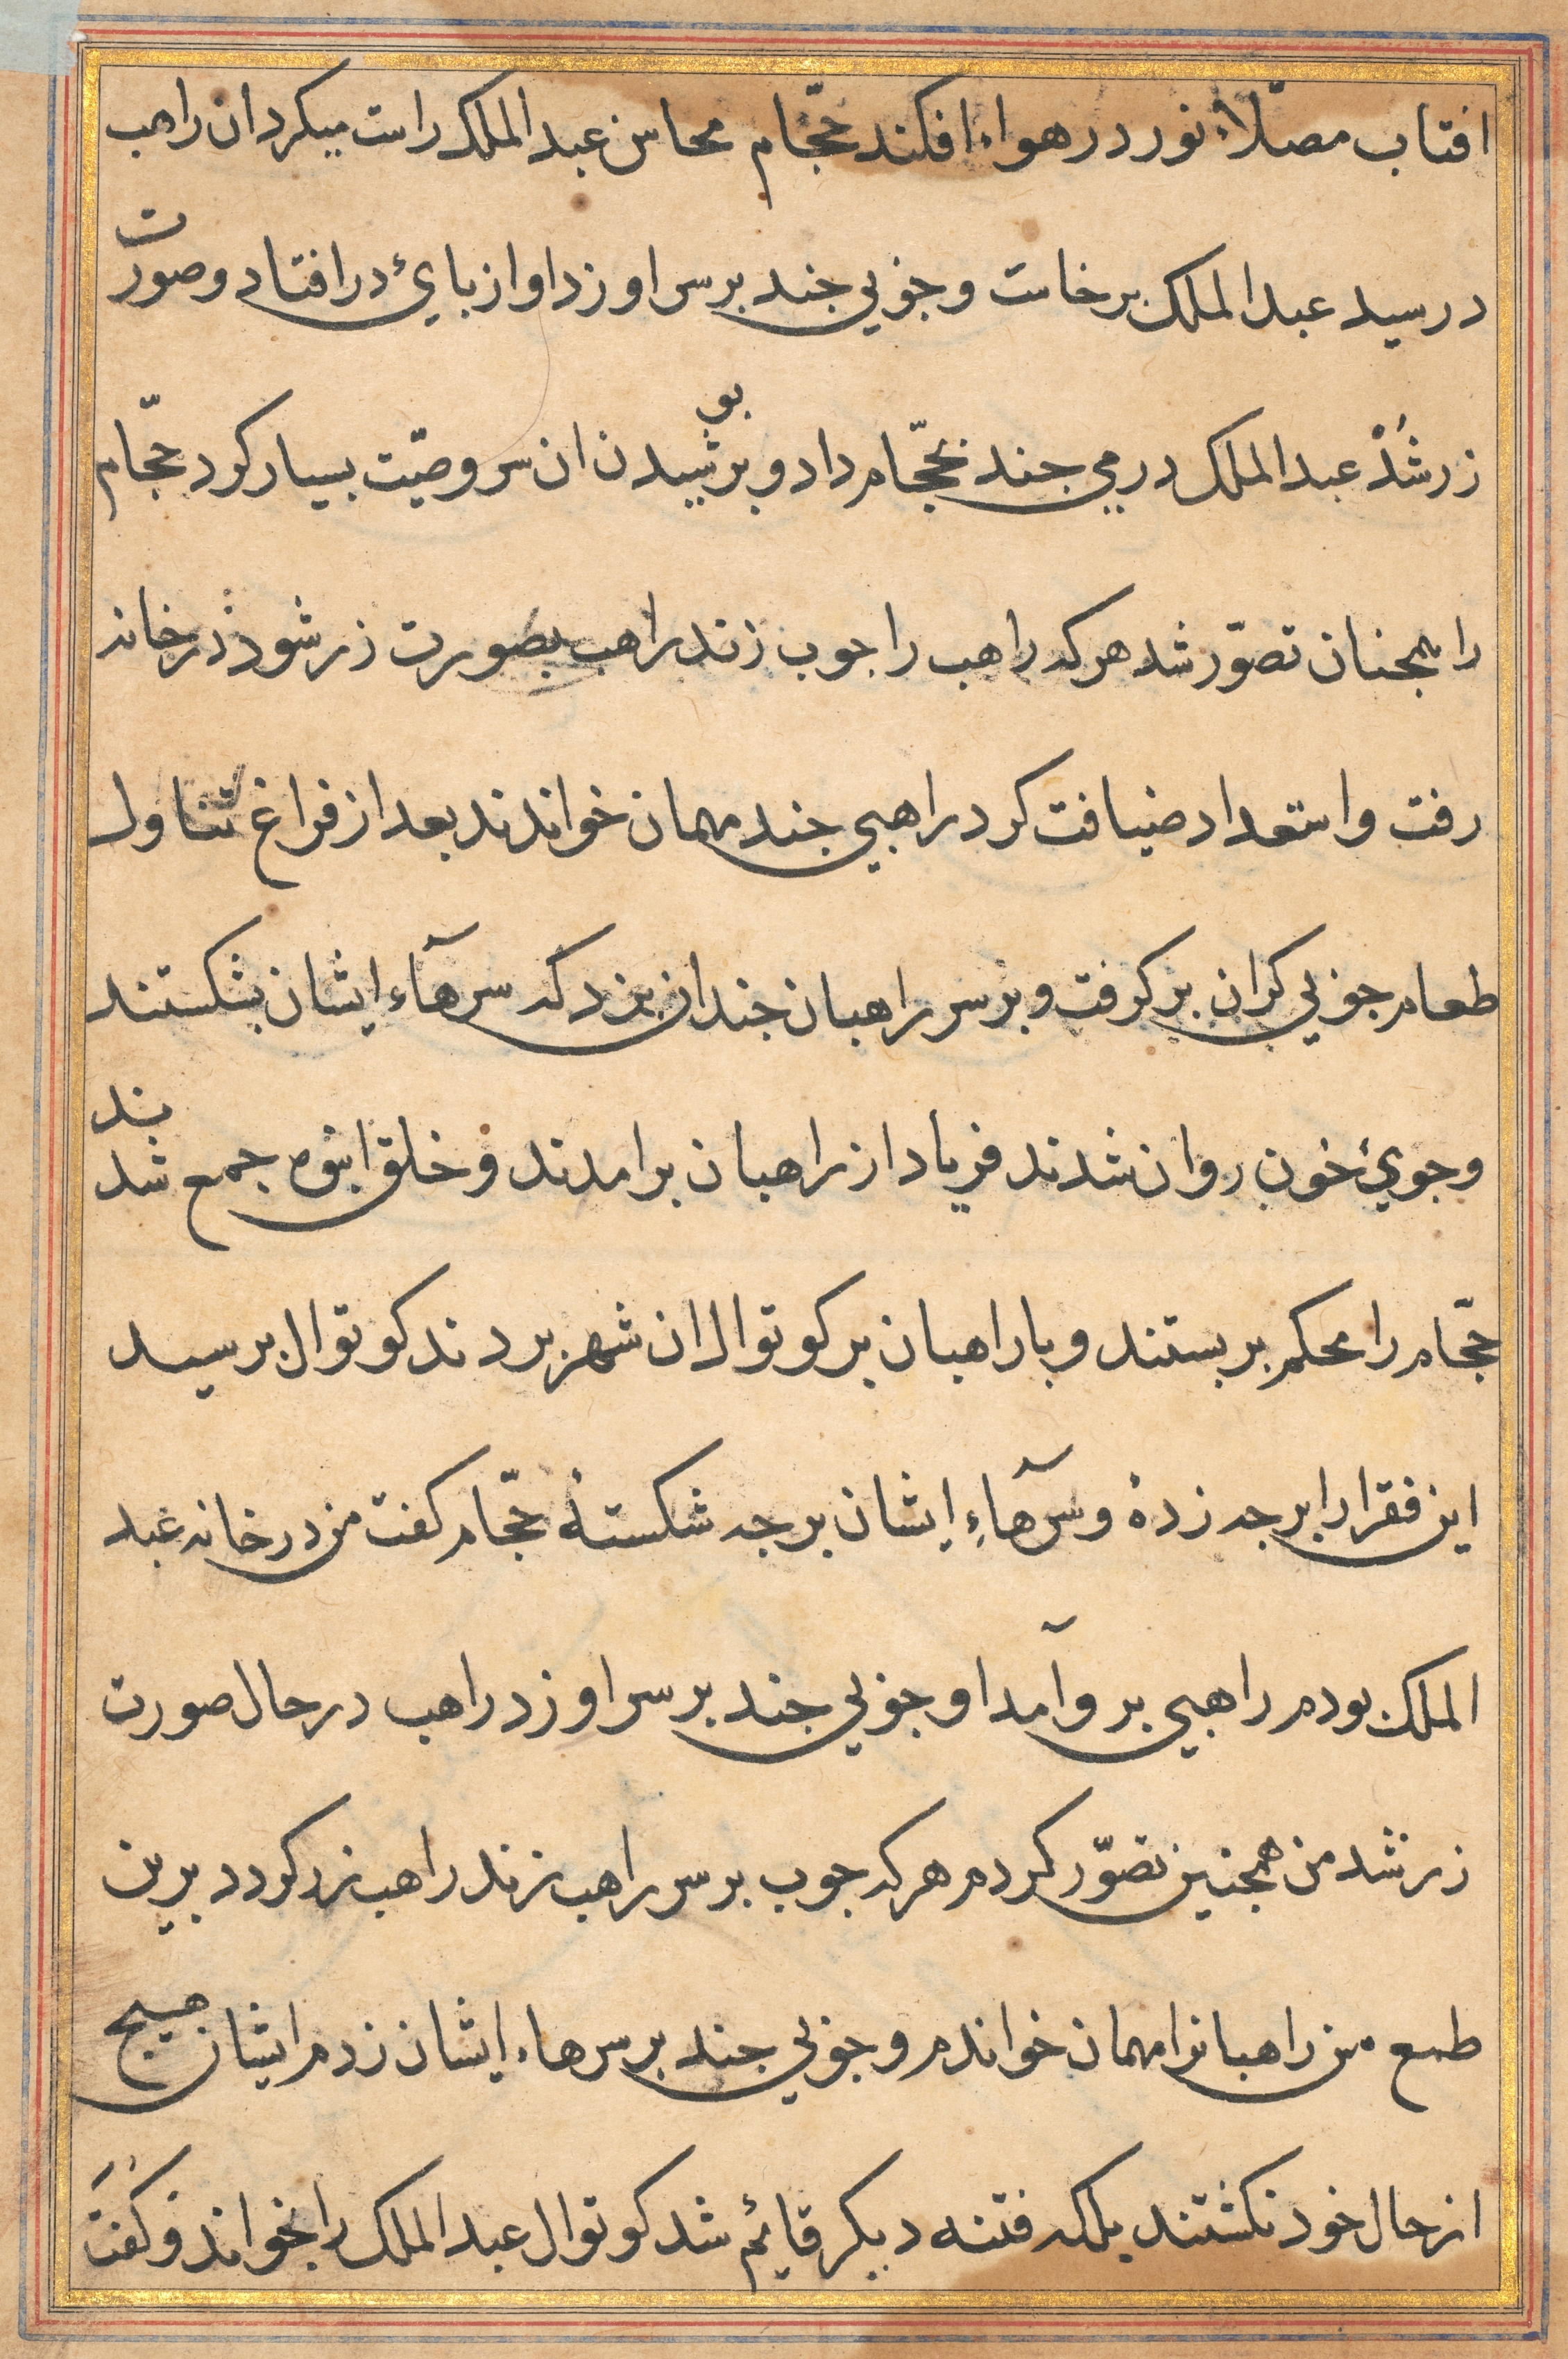 افتاب مصلّاء نور در هواء افکند حجّام محاسن عبد الملک راست میکرد ان راهب
در رسید عبد الملک برخاست و جوبی جند بر سر او زد او از بایٔ در افتاد و صورت
زر شُدْ عبد الملک درمی جند بحجّام داد و بر بوشیدن ان سر وصیّت بسیار کرد حجّام
را همجنان تصوّر شد هر که راهب را جوب زند راهب بصورت زر شود در خانه
رفت و استعداد ضیافت کرد راهبی جند مهمان خواندند بعد از فراغ تناول
طعام جوبی کران بر کرفت و بر سر راهبان جندان بزد که سرهآء ایشان بشکستند
و جویٔ خون روان شدند فریاد از راهبان برامدند و خلق انبوه جمع شد بند
حجّام را محکم بربستند و با راهبان بر کوتوال ان شهر بردند کوتوال برسید
این فقرا را برجه زدهٔ و سرهآءِ ایشان برجه شکستهٔ حجّام کفت من در خانه عبد
الملک بودم راهبی بر وآمد او جوبی جند بر سر او زد راهب در حال صورت
زر شد من همجنین تصوّر کردم هر که جوب بر سر راهب زند راهب زر کردد برین
طمع من راهبانرا مهمان خواندم و جوبی جند بر سرهاء ایشان زدم ایشان هیج
از حال خود نکشتند بلکه فتنه دیکر قایٔم شد کوتوال عبد الملک را بخواند و کفت